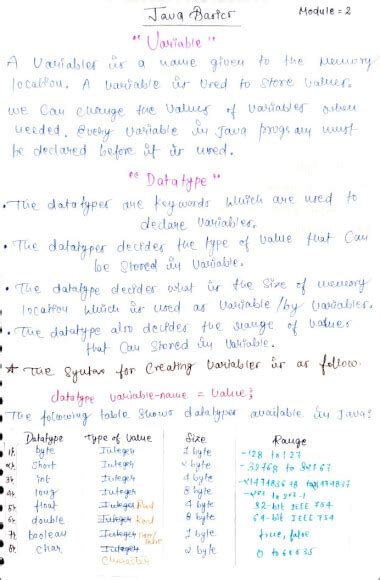 Java Basics Module = 2
"Variable"
A Variables is a name given to the memory
location. A variable is used to store values.
we can change the values of variables when
needed. Every variable in Java program must
be declared before it is used.
"Datatype"
• The datatypes are keywords which are used to
declare variables.
• The datatypes decides the type of value that can
be stored in variable.
• The datatype decides what is the size of memory
location which is used as variable / by variables.
• The datatype also decides the range of values
that can stored in variable.
* The syntax for creating variables is as follow.
datatype variable-name = value;
The following table shows datatypes available in Java:
Datatype Type of value Size Range
1. byte Integer 1 byte -128 to 127
2. short Integer 2 byte
3. int Integer 4 byte
4. long Integer 8 byte
5. float Integer Real 4 byte 32-bit IEEE 754
6. double Integer Real 8 byte 64-bit IEEE 754
7. boolean Integer 1 byte true, false
8. char Integer 2 byte
Character